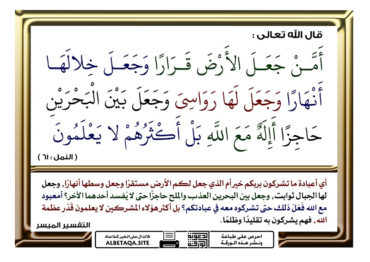 قال الله تعالى :
أَمَّنْ جَعَلَ الأَرْضَ قَرَارًا وَجَعَلَ خِلالَهَا
أَنْهَارًا وَجَعَلَ لَهَا رَوَاسِيَ وَجَعَلَ بَيْنَ الْبَحْرَيْنِ
حَاجِزًا أَإِلَهٌ مَعَ اللَّهِ بَلْ أَكْثَرُهُمْ لا يَعْلَمُونَ
( النمل : ٦١ )
أي أعبادة ما تشركون بربكم خير أم الذي جعل لكم الأرض مستقرًا وجعل وسطها أنهارًا, وجعل
لها الجبال ثوابت, وجعل بين البحرين العذب والملح حاجزًا حتى لا يُفسد أحدهما الآخر؟ أمعبود
مع الله فعَلَ ذلك حتى تشركوه معه في عبادتكم؟ بل أكثر هؤلاء المشركين لا يعلمون قَدْر عظمة
الله, فهم يشركون به تقليدًا وظلمًا.
التفسير الميسر
احرص على طباعة
ونشر هذه الورقة
فالدال على الخير كفاعله
ALBETAQA.SITE